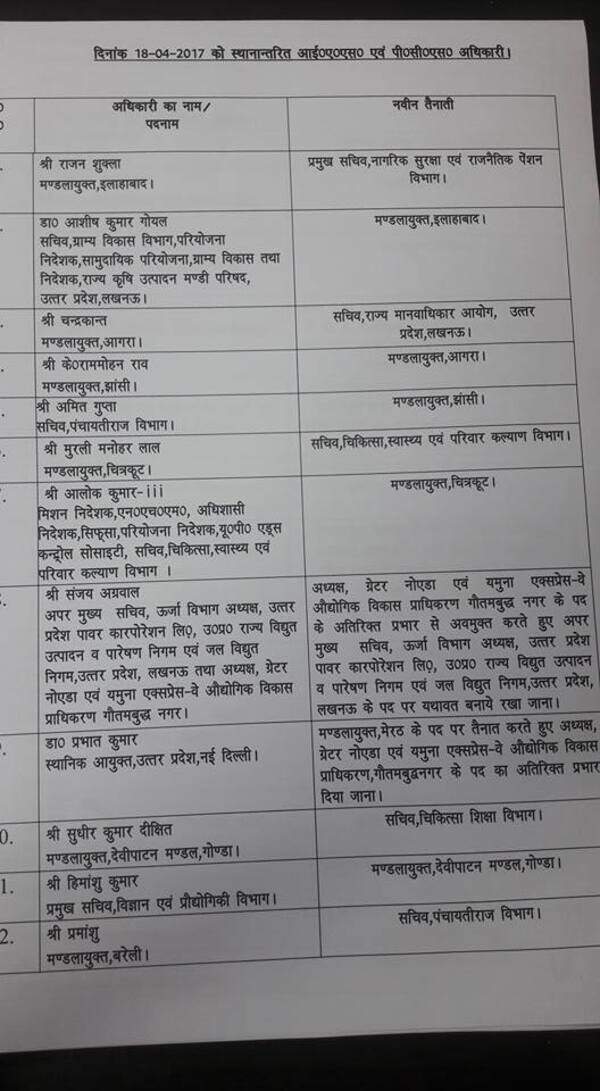 दिनांक 18-04-2017 को स्थानान्तरित आई०ए०एस० एवं पी०सी०एस० अधिकारी।
अधिकारी का नाम/
पदनाम
नवीन तैनाती
श्री राजन शुक्ला
मण्डलायुक्त,इलाहाबाद।
प्रमुख सचिव,नागरिक सुरक्षा एवं राजनैतिक पेंशन
विभाग।
डा० आशीष कुमार गोयल
सचिव,ग्राम्य विकास विभाग,परियोजना
निदेशक,सामुदायिक परियोजना,ग्राम्य विकास तथा
निदेशक,राज्य कृषि उत्पादन मण्डी परिषद,
उत्तर प्रदेश,लखनऊ।
मण्डलायुक्त,इलाहाबाद।
श्री चन्द्रकान्त
मण्डलायुक्त,आगरा।
सचिव,राज्य मानवाधिकार आयोग, उत्तर
प्रदेश,लखनऊ।
श्री के०राममोहन राव
मण्डलायुक्त,झांसी।
मण्डलायुक्त,आगरा।
श्री अमित गुप्ता
सचिव,पंचायतीराज विभाग।
मण्डलायुक्त,झांसी।
श्री मुरली मनोहर लाल
मण्डलायुक्त,चित्रकूट।
सचिव,चिकित्सा,स्वास्थ्य एवं परिवार कल्याण विभाग।
श्री आलोक कुमार-iii
मिशन निदेशक,एन०एच०एम०, अधिशासी
निदेशक,सिफ्सा,परियोजना निदेशक,यू०पी० एड्स
कन्ट्रोल सोसाइटी, सचिव,चिकित्सा,स्वास्थ्य एवं
परिवार कल्याण विभाग ।
मण्डलायुक्त,चित्रकूट।
श्री संजय अग्रवाल
अपर मुख्य सचिव, ऊर्जा विभाग अध्यक्ष, उत्तर
प्रदेश पावर कारपोरेशन लि०, उ०प्र० राज्य विद्युत
उत्पादन व पारेषण निगम एवं जल विद्युत
निगम,उत्तर प्रदेश, लखनऊ तथा अध्यक्ष, ग्रेटर
नोएडा एवं यमुना एक्सप्रेस-वे औद्योगिक विकास
प्राधिकरण गौतमबुद्ध नगर।
अध्यक्ष, ग्रेटर नोएडा एवं यमुना एक्सप्रेस-वे
औद्योगिक विकास प्राधिकरण गौतमबुद्ध नगर के पद
के अतिरिक्त प्रभार से अवमुक्त करते हुए अपर
मुख्य सचिव, ऊर्जा विभाग अध्यक्ष, उत्तर प्रदेश
पावर कारपोरेशन लि०, उ०प्र० राज्य विद्युत उत्पादन
व पारेषण निगम एवं जल विद्युत निगम,उत्तर प्रदेश,
लखनऊ के पद पर यथावत बनाये रखा जाना।
डा० प्रभात कुमार
स्थानिक आयुक्त,उत्तर प्रदेश,नई दिल्ली।
मण्डलायुक्त,मेरठ के पद पर तैनात करते हुए अध्यक्ष,
ग्रेटर नोएडा एवं यमुना एक्सप्रेस-वे औद्योगिक विकास
प्राधिकरण,गौतमबुद्धनगर के पद का अतिरिक्त प्रभार
दिया जाना।
0.
श्री सुधीर कुमार दीक्षित
मण्डलायुक्त,देवीपाटन मण्डल,गोण्डा।
सचिव,चिकित्सा शिक्षा विभाग।
1.
श्री हिमांशु कुमार
प्रमुख सचिव,विज्ञान एवं प्रौद्योगिकी विभाग।
मण्डलायुक्त,देवीपाटन मण्डल,गोण्डा।
2.
श्री प्रमांशु
मण्डलायुक्त,बरेली।
सचिव,पंचायतीराज विभाग।